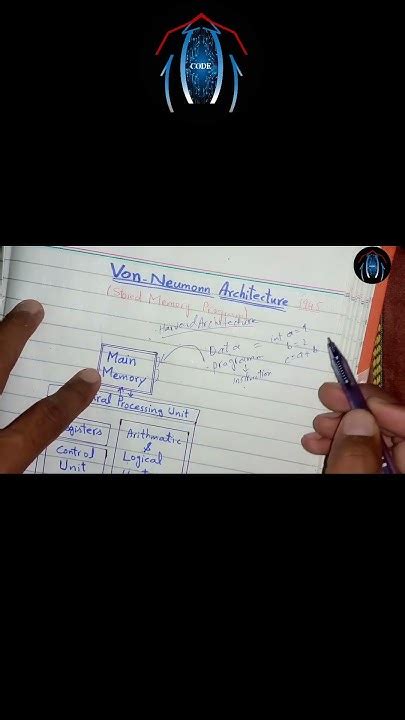 CODE
Von-Neumonn Architecture 1945
(Stored Memory Program)
Harvard Architecture
Main
Memory
Data = int a=1
b=2
programe
instruction
Processing Unit
Control
Unit
Arithmatic
&
Logical